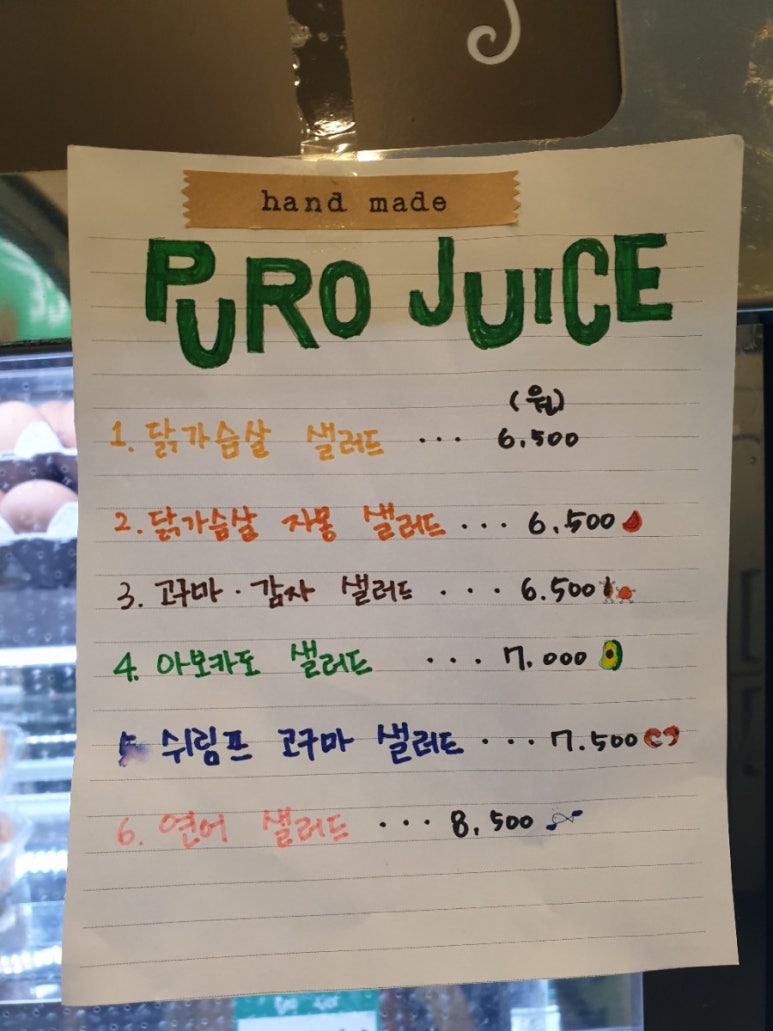 hand made
PURO JUICE
(원)
1. 닭가슴살 샐러드 ... 6.500
2. 닭가슴살 자몽 샐러드 ... 6.500
3. 고구마 · 감자 샐러드 ... 6.500
4. 아보카도 샐러드 ... 7.000
5. 쉬림프 고구마 샐러드 ... 7.500
6. 연어 샐러드 ... 8.500